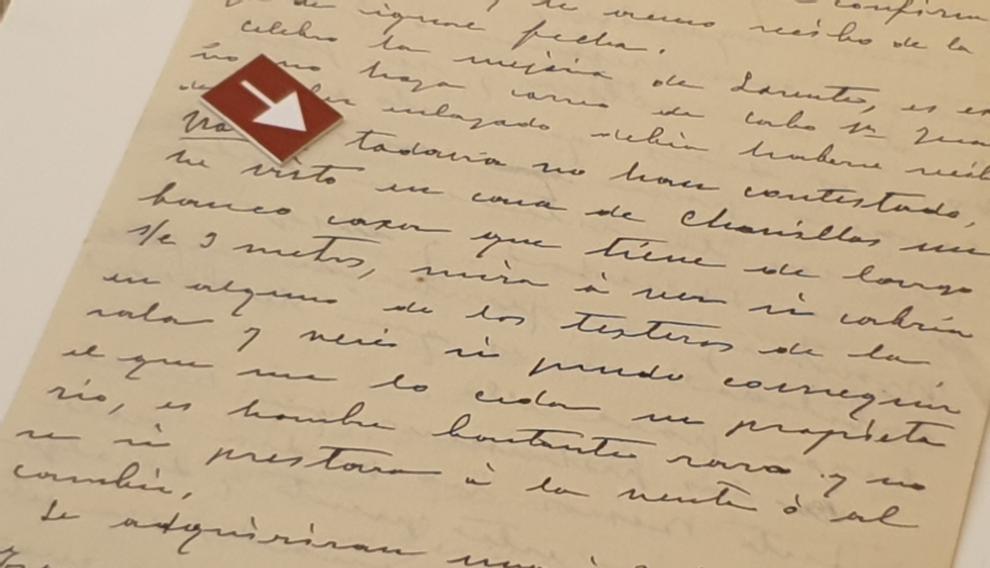 de igual fecha. y te acuso recibo de la
celebro la mejoria de Lorente, es
no haya correo de cabo
enlazado debia haberse
todavia no han contestado,
he visto en casa de Chonillos un
banco cajon que tiene de largo
s/e 3 metros, mira à ver si cabria
en alguno de los testeros de la
sala y veré si puedo conseguir
el que me lo ceda su propieta
rio, es hombre bastante raro y no
se si prestara à la venta ò al
cambio,
Se adquiriran